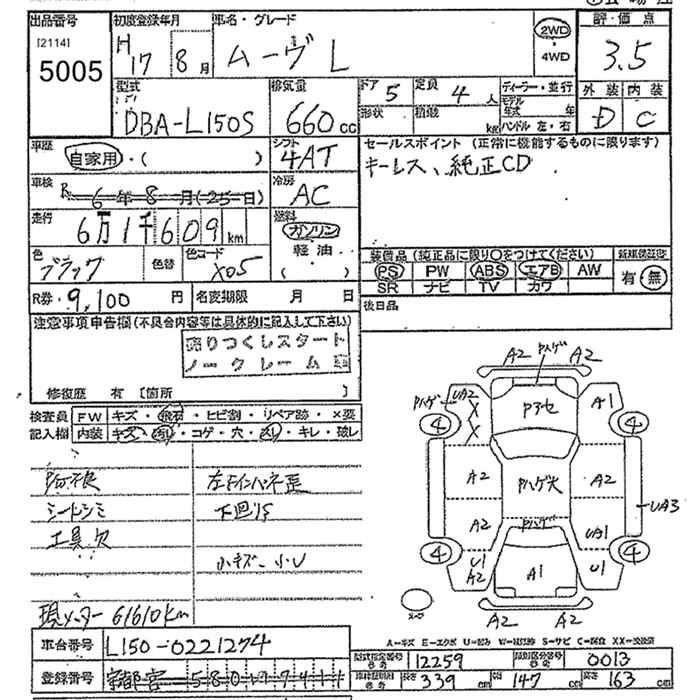 出品番号 初度登録年月 車名・グレード 評・価点
[2114] 5005 H 17 8月 ムーヴ L 2WD ・ 4WD 3.5
型式 DBA-L150S 排気量 660 cc ドア 5 定員 4 人 ディーラー・並行 外装 内装
形状 積載 kg モデル年式 年 ハンドル 左・右 D C
車歴 自家用・( ) シフト 4AT セールスポイント (正常に機能するものに限ります)
キーレス、純正CD
車検 R 6年 8月(25日) 冷房 AC
走行 6万1千609 km 燃料 ガソリン
軽油・( )
色 ブラック 色替 色コード X05 装備品 (純正品に限り○をつけてください) 新車保証書
PS PW ABS エアB AW 有・無
SR ナビ TV カワ
R券・9,100 円 名変期限 月 日 後日品
注意事項申告欄 (不具合内容等は具体的に記入して下さい)
売りつくしスタート
ノークレーム
修復歴 有 [箇所 ]
検査員 FW キズ・飛石・ヒビ割・リペア跡・×要
記入欄 内装 キズ・汚れ・コゲ・穴・スレ・キレ・破レ
不良 左Fインパネ歪
シートシミ 下回りS
工具欠
小キズ・小U
現メーター 61610km
A2 Pハゲ A2
Pハゲ UA2 X X Pアセ A1
4 4
A2 Pハゲ大 A2
UA3
A2 Pハゲ UA1
4 4
U1 A2 A1 U1
A2 A2
スペア
A=キズ E=エクボ U=凹み W=補修跡 S=サビ C=腐食 XX=交換済
車台番号 L150-0221274
型式指定番号 12259 類別区分番号 0013
登録番号 宇都宮 580
長さ 339 cm 幅 147 cm 高さ 163 cm